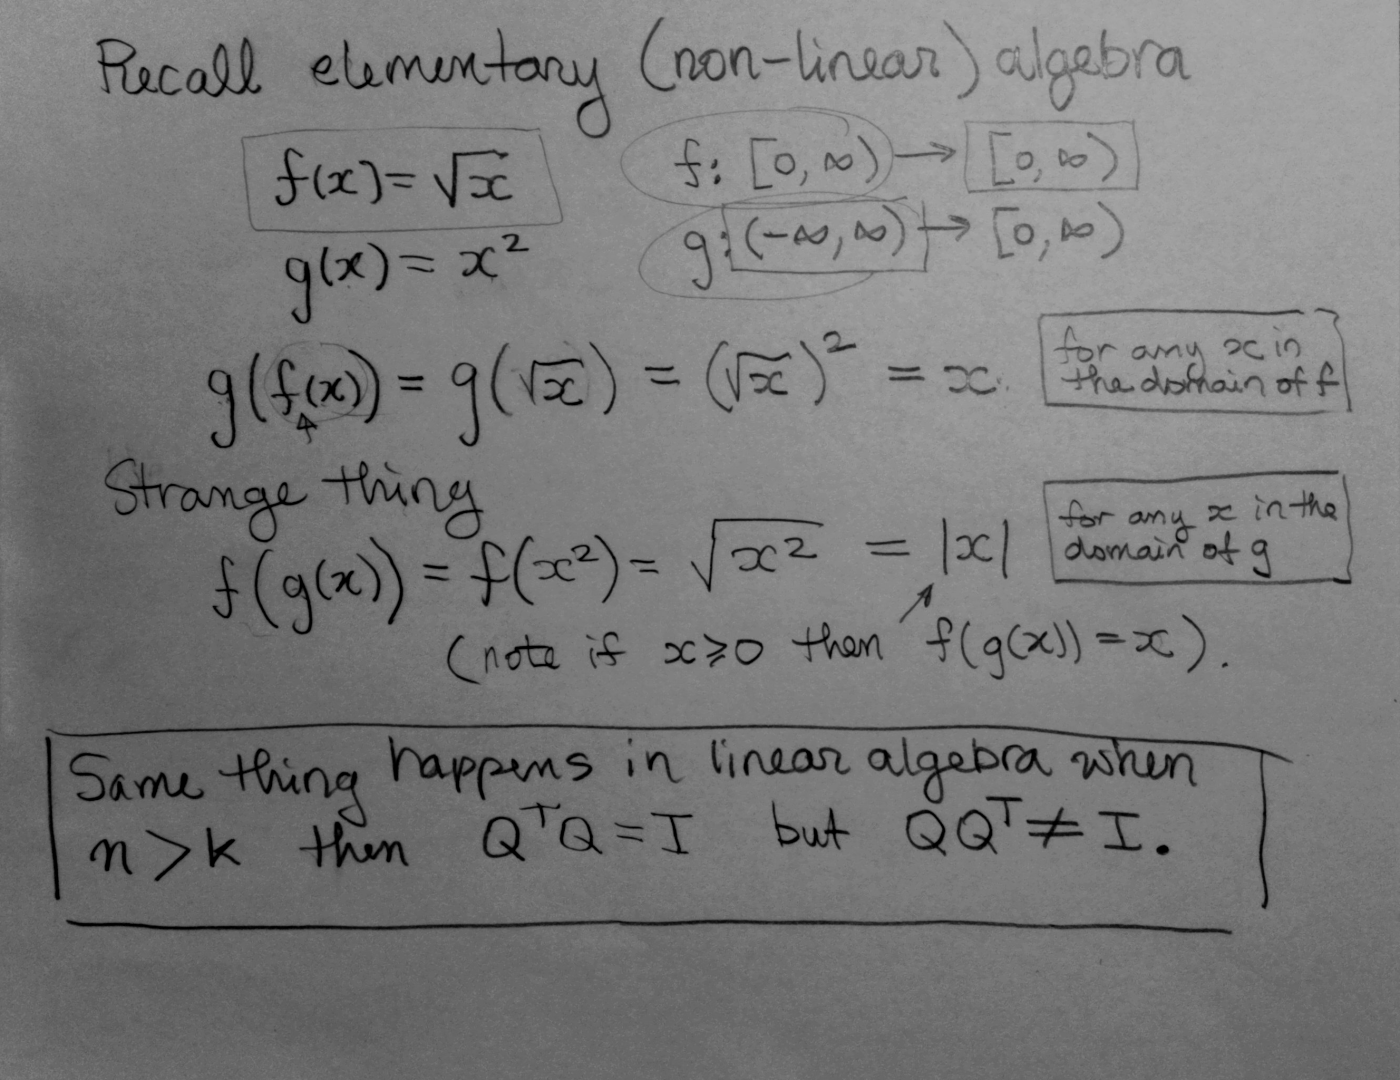 Recall elementary (non-linear) algebra
f(x) = √x    f: [0, ∞) → [0, ∞)
g(x) = x²    g: (-∞, ∞) → [0, ∞)
g(f(x)) = g(√x) = (√x)² = x.    for any x in
the domain of f
Strange thing
f(g(x)) = f(x²) = √x² = |x|    for any x in the
domain of g
(note if x ⩾ 0 then f(g(x)) = x).
Same thing happens in linear algebra when
n > k then QᵀQ = I but QQᵀ ≠ I.